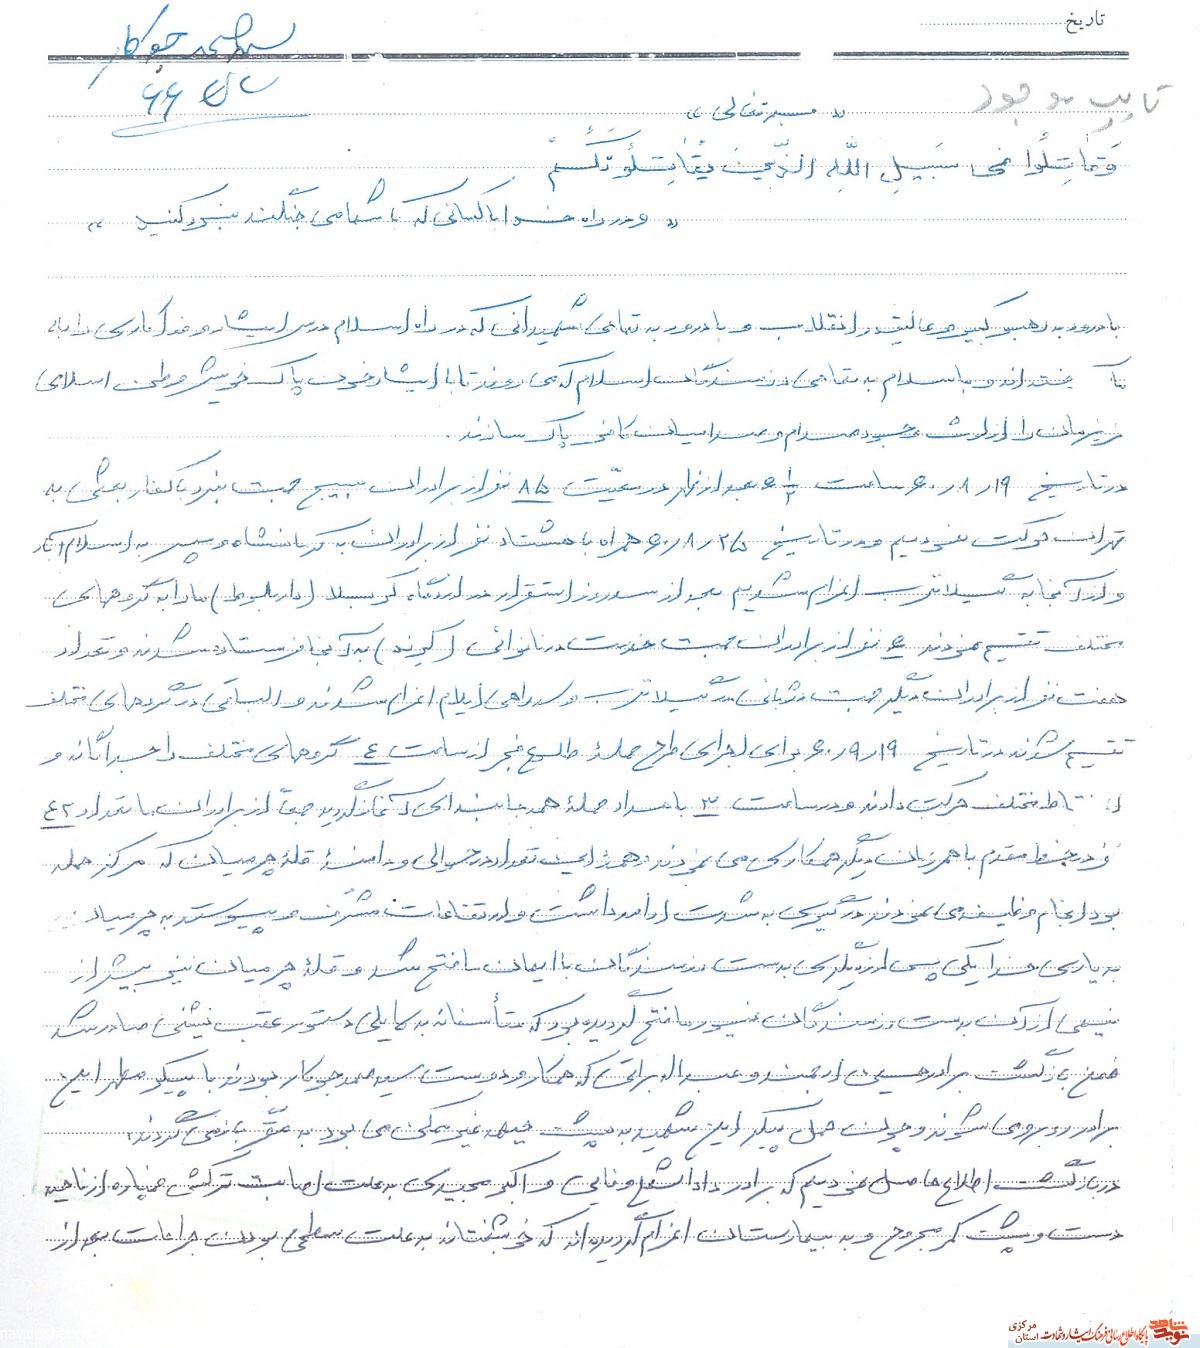 تاریخ
سید صمد جوکار
سال ۶۶
تایپ موجود
« بسمه تعالی »
وَقاتِلُوا فی سَبیلِ اللّهِ الَّذینَ یُقاتِلُونَکُمْ
« و در راه خدا با کسانی که با شما می جنگند نبرد کنید »
با درود به رهبر کبیر و عالیقدر انقلاب و با درود به تمامی شهیدانی که در راه اسلام درس ایثار و فداکاری را به
ما اند و با سلام به تمامی رزمندگان اسلام که می روند تا با ایثار خون پاک خویش وطن اسلامی
عزیزمان را از لوث وجود صدام و صدامیان کافر پاک سازند .
در تاریخ ۶۰/۸/۱۹ ساعت ۶ ۱/۲ بعد از ظهر در معیّت ۸۵ نفر از برادران بسیج جهت نبرد با کفار بعثی به
تهران حرکت نمودیم و در تاریخ ۶۰/۸/۲۵ همراه با هشتاد نفر از برادران به کرمانشاه و سپس به اسلام آباد
و از آنجا به گیلانغرب اعزام شدیم بعد از سه روز استقرار در اردوگاه کربلا (دار بلوط) ما را به گروههای
مختلف تقسیم نمودند ۶ نفر از برادران جهت خدمت در نانوائی (کرند) به آنجا فرستاده شدند و تعداد
هفت نفر از برادران دیگر جهت دژبانی در گیلانغرب و سه راهی ایلام اعزام شدند و الباقی در گروههای مختلف
تقسیم شدند در تاریخ ۶۰/۹/۱۹ برای اجرای طرح حملهٔ طلوع فجر از ساعت ۴ گروههای مختلف را جداگانه و
از نقاط مختلف حرکت دادند و در ساعت ۳ بامداد حملهٔ همه جانبه ای آغاز گردید جمعاً از برادران ما تعداد ۴۲
نفر در خط مقدم با همرزمان دیگر همکاری می نمودند همهٔ این تعداد در حوالی و دامنهٔ قلهٔ چرمیان که مرکز حمله
بود انجام وظیفه می نمودند درگیری به شدت ادامه داشت و ارتفاعات مشرف و پیوسته به چرمیان
به یاری خدا یکی پس از دیگری بدست رزمندگان با ایمان ما فتح شد و قلهٔ چرمیان نیز بیش از
نیمی از آن بدست رزمندگان غیور ما فتح گردیده بود که متأسفانه به دلایلی دستور عقب نشینی صادر شد
ضمن بازگشت برادر حسین ارجمند و عبداله براتی که همکار و دوست سید صمد جوکار بودند با پیکر مطهر این
برادر روبرو می شوند و چون حمل پیکر این شهید به پشت جبهه غیر ممکن می بود به مقر باز می گردند .
در بازگشت اطلاع حاصل نمودیم که برادر داداشی وفایی و اکبر مجیدی به علت اصابت ترکش خمپاره از ناحیه
دست و پشت کمر مجروح و به بیمارستان اعزام گردیده اند که خوشبختانه به علت سطحی بودن جراحات بعد از
نوید شاهد
پایگاه اطلاع رسانی فرهنگ ایثار و شهادت استان مرکزی